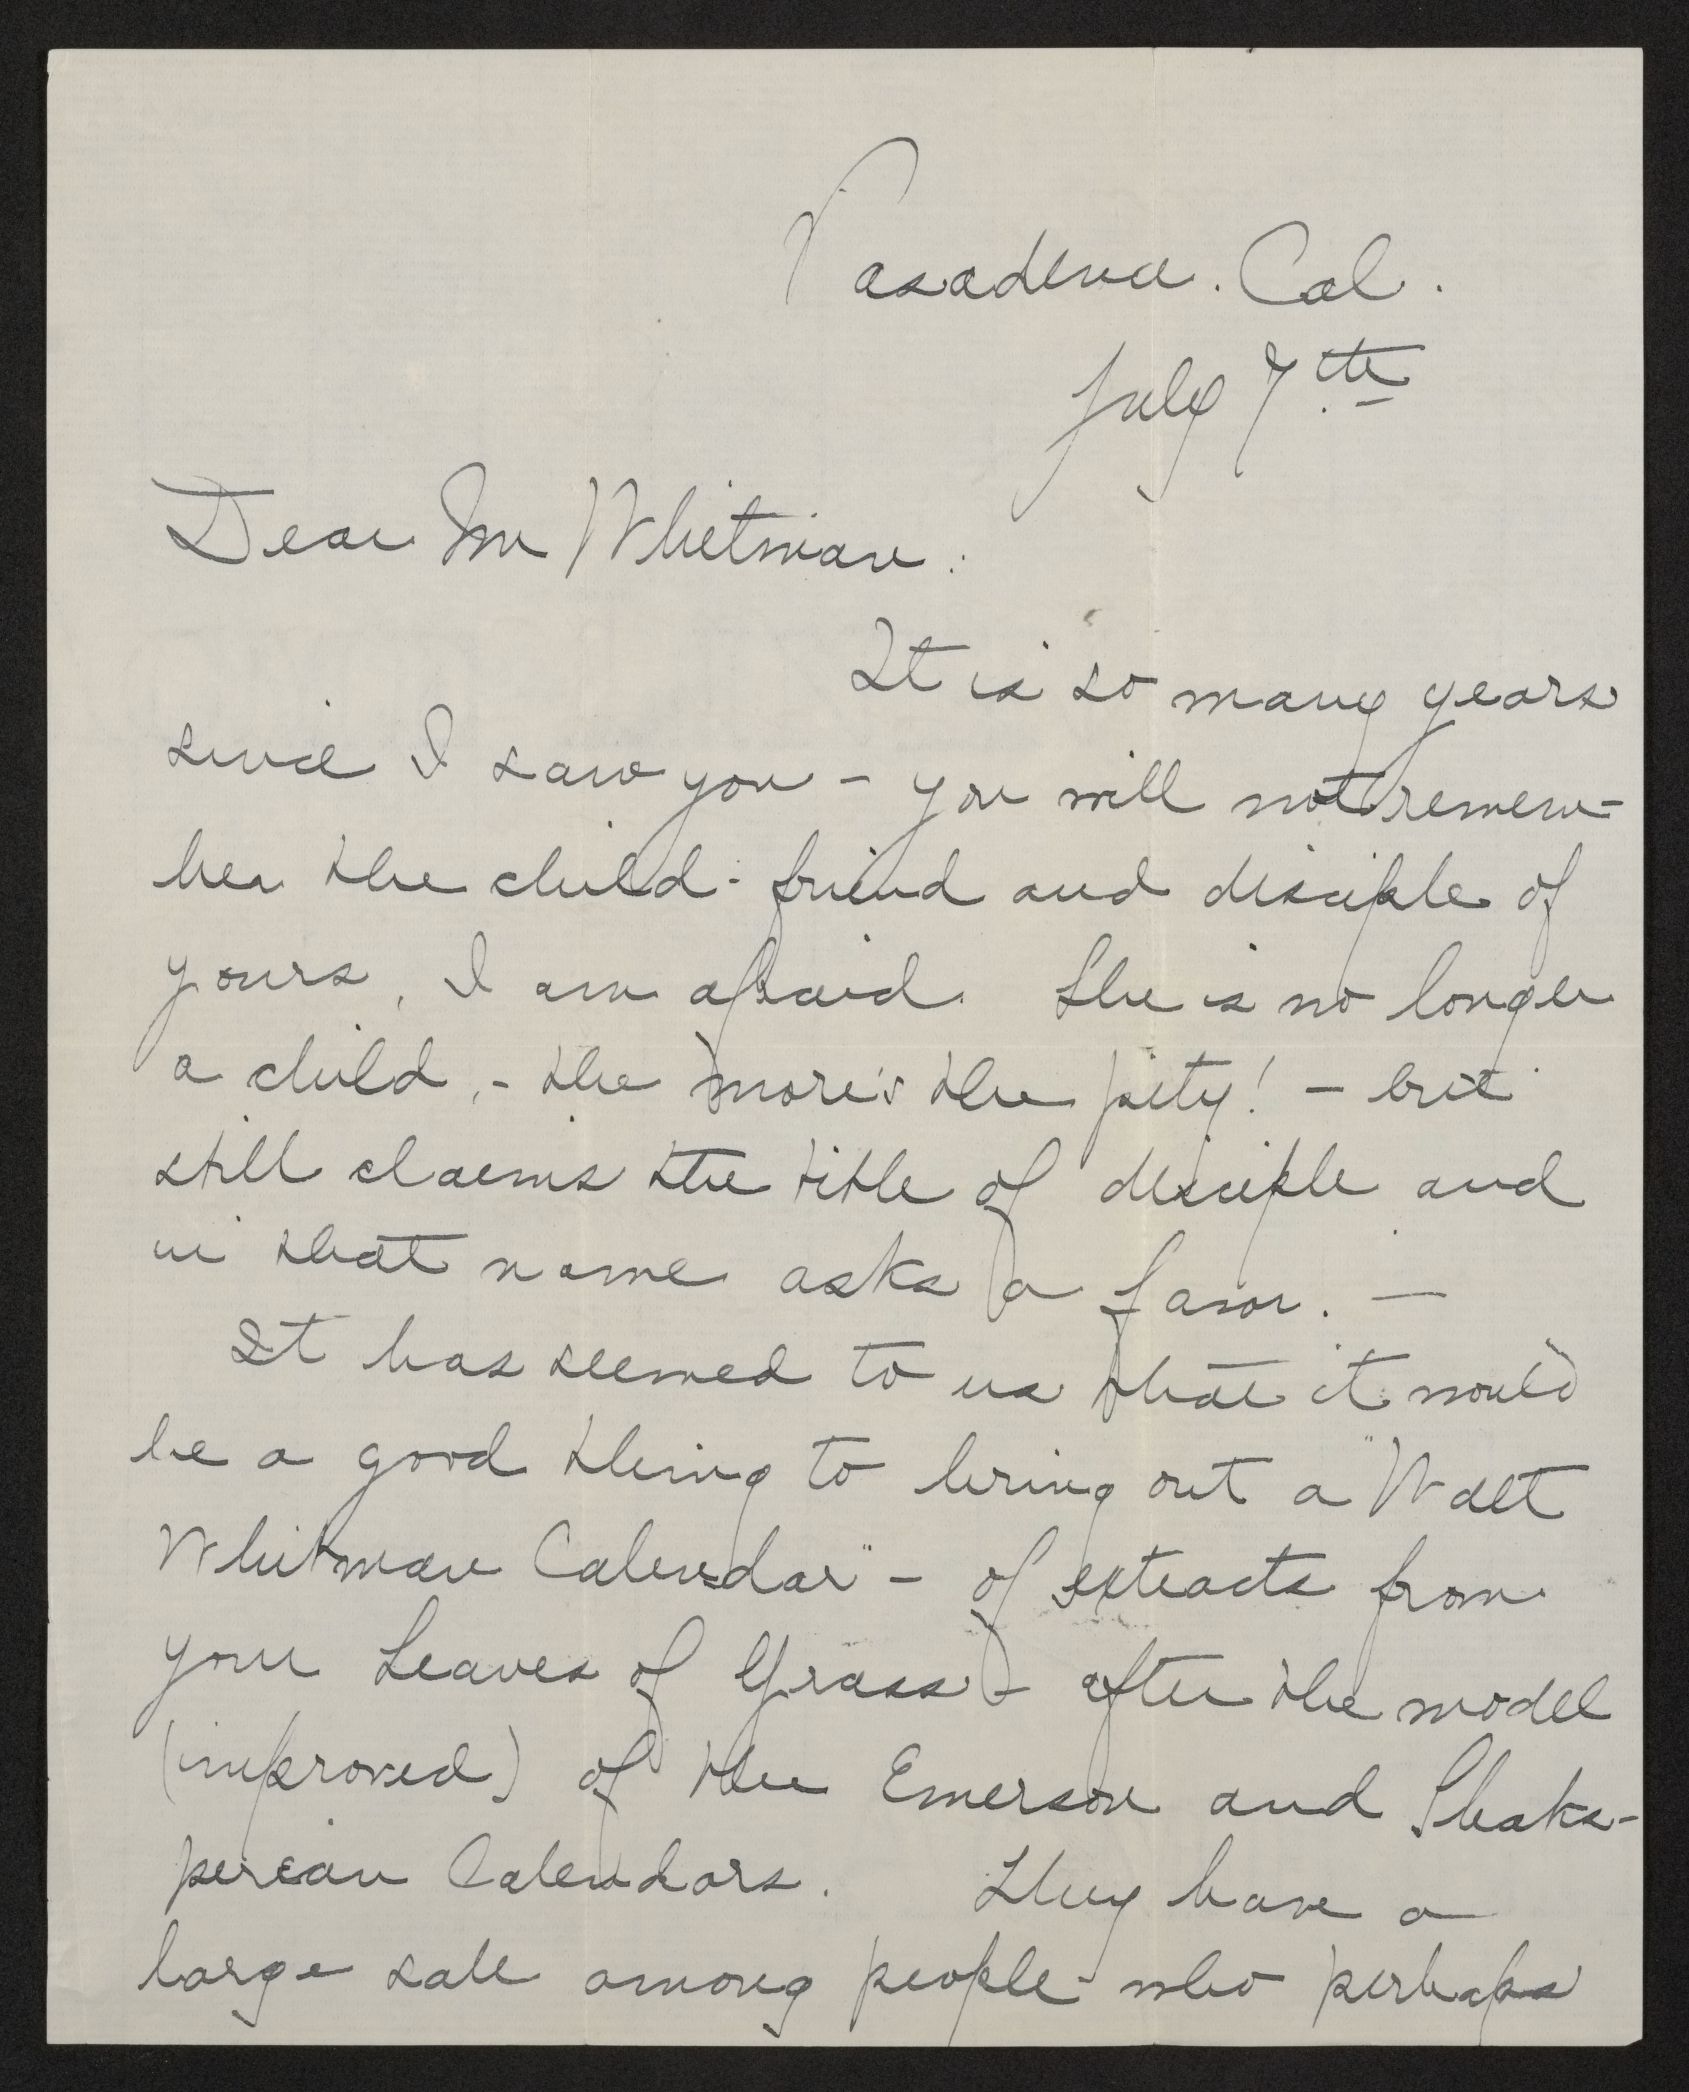 Pasadena. Cal.
July 7th
Dear Mr Whitman:
It is so many years
since I saw you – you will not remem-
ber the child-friend and disciple of
yours, I am afraid. She is no longer
a child, – the more's the pity! – but
still claims the title of disciple and
in that name asks a favor. —
It has seemed to us that it would
be a good thing to bring out a "Walt
Whitman Calendar" – of extracts from
your Leaves of Grass – after the model
(improved) of the Emerson and Shaks-
perean Calendars. They have a
large sale among people who perhaps